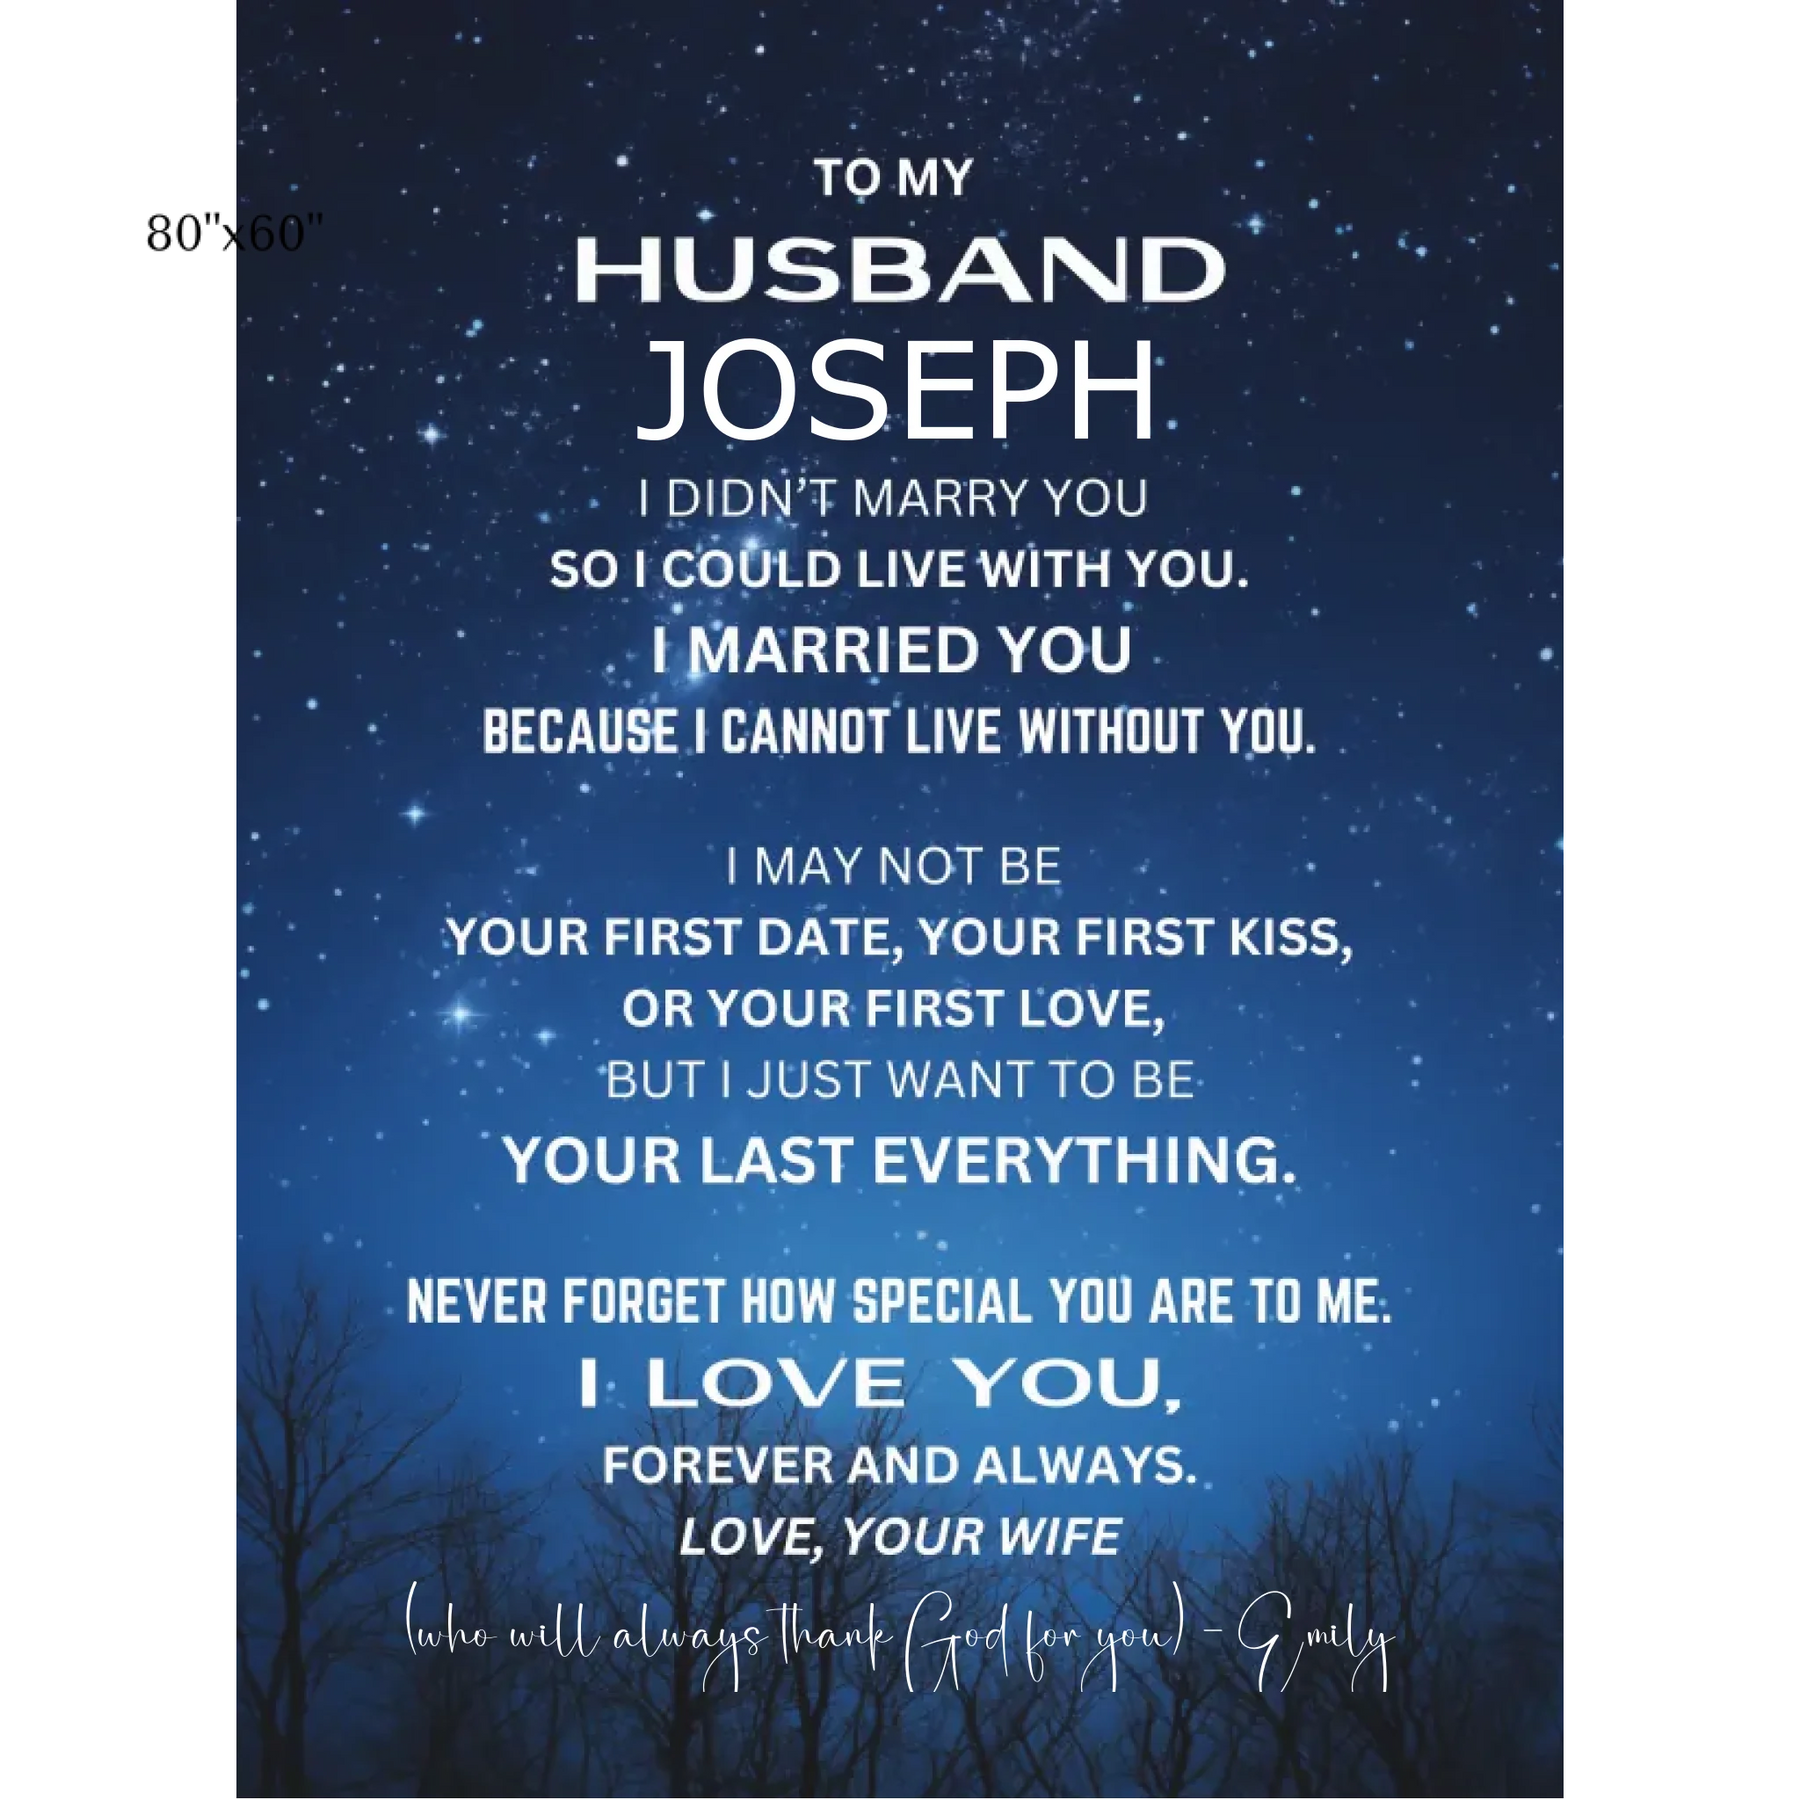 TO MY
80"x60"
HUSBAND
JOSEPH
I DIDN’T MARRY YOU
SO I COULD LIVE WITH YOU.
I MARRIED YOU
BECAUSE I CANNOT LIVE WITHOUT YOU.
I MAY NOT BE
YOUR FIRST DATE, YOUR FIRST KISS,
OR YOUR FIRST LOVE,
BUT I JUST WANT TO BE
YOUR LAST EVERYTHING.
NEVER FORGET HOW SPECIAL YOU ARE TO ME.
I LOVE YOU,
FOREVER AND ALWAYS.
LOVE, YOUR WIFE
(who will always thank God for you) - Emily